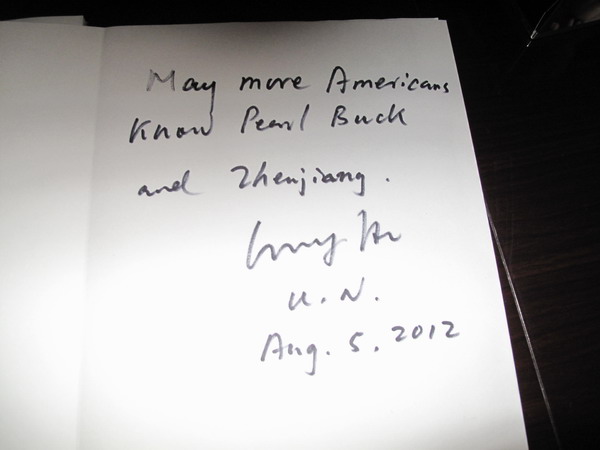 May more Americans
Know Pearl Buck
and Zhenjiang.
U. N.
Aug. 5. 2012